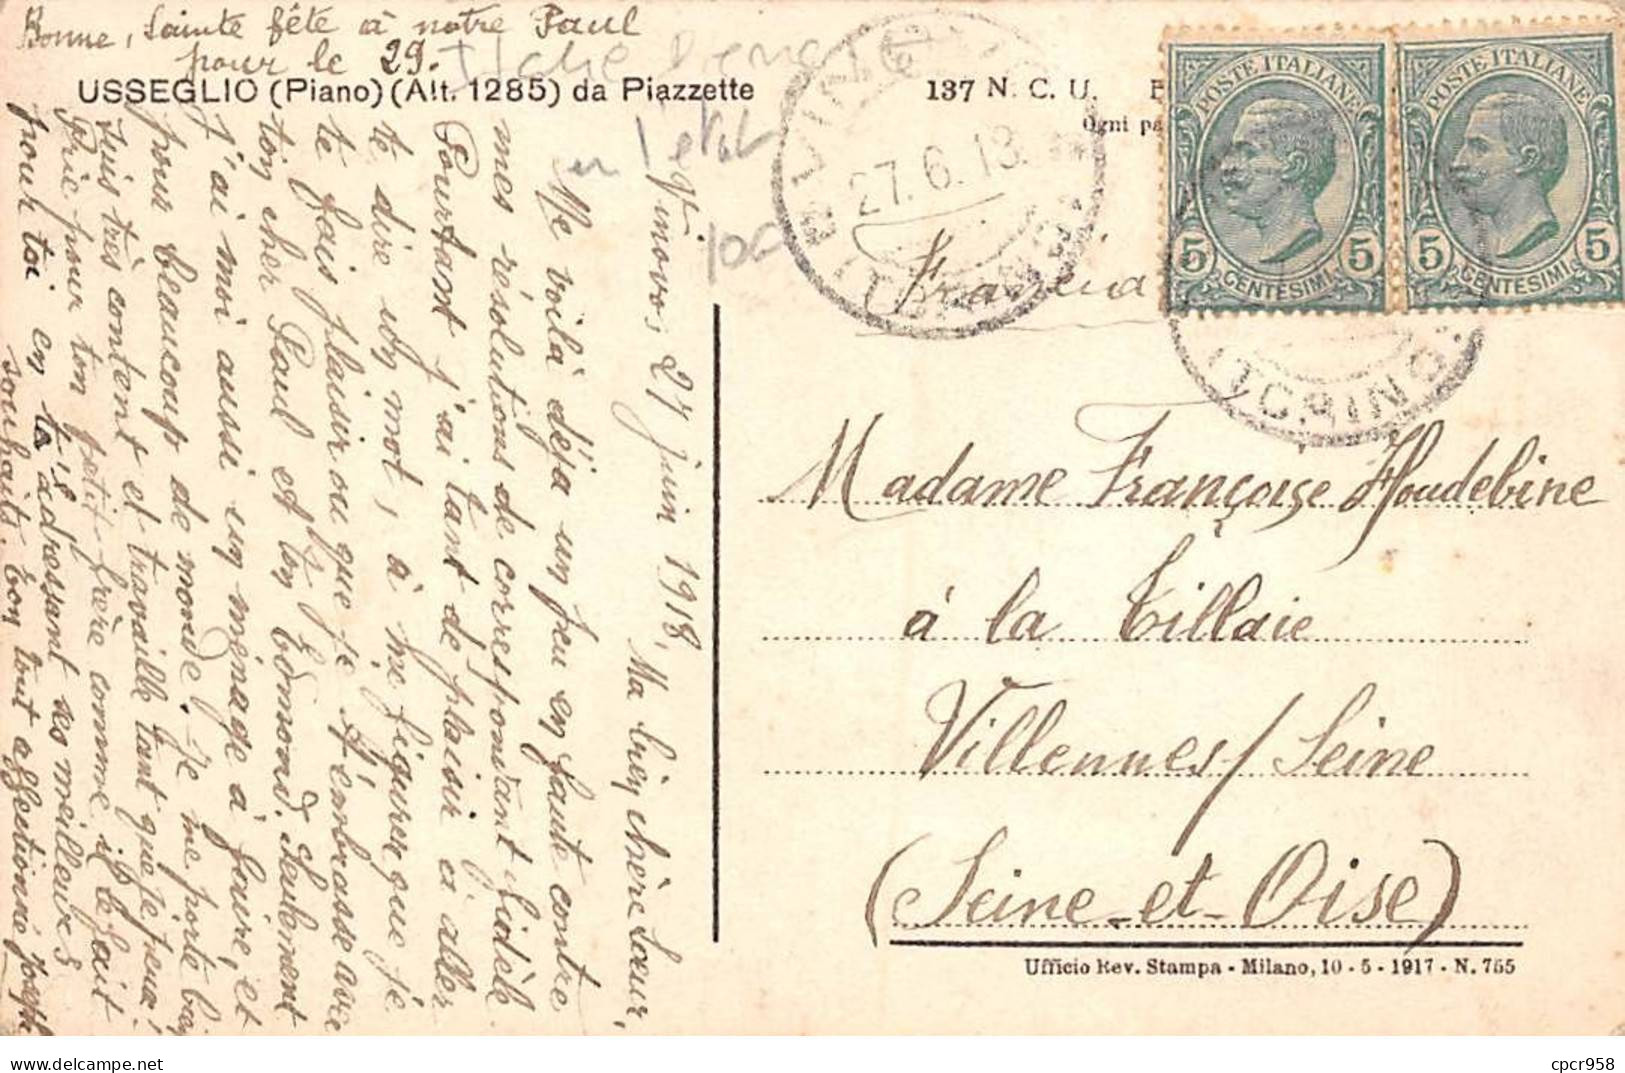 Bonne, Sainte fête à notre Paul
pour le 29.
USSEGLIO (Piano) (Alt. 1285) da Piazzette
137 N. C. U.
Ogni pa
27.6.18
TORINO
Francia
POSTE ITALIANE
5 5
CENTESIMI
POSTE ITALIANE
5 5
CENTESIMI
TORINO
100
Vinovo, 27 juin 1918,
Ma bien chère Sœur,
Me voilà déja un peu en faute contre
mes résolutions de correspondant fidèle
Pourtant j'ai tant de plaisir à aller
te dire un mot, à me figurer que je
te fais plaisir ou que je t'embrasse avec
ton cher Paul et ton Edmond. Seulement
j'ai moi aussi un ménage à faire, et
pour beaucoup de monde. Je me porte bien
suis très content et travaille tant que je peux!
Prie pour ton petit frère comme il le fait
pour toi en t'adressant ses meilleurs
souhaits. Ton tout affectionné Joseph
Madame Françoise Houdebine
à la Tillaie
Villennes/Seine
(Seine-et-Oise)
Ufficio Rev. Stampa - Milano, 10 - 5 - 1917 - N. 755
cpcr958